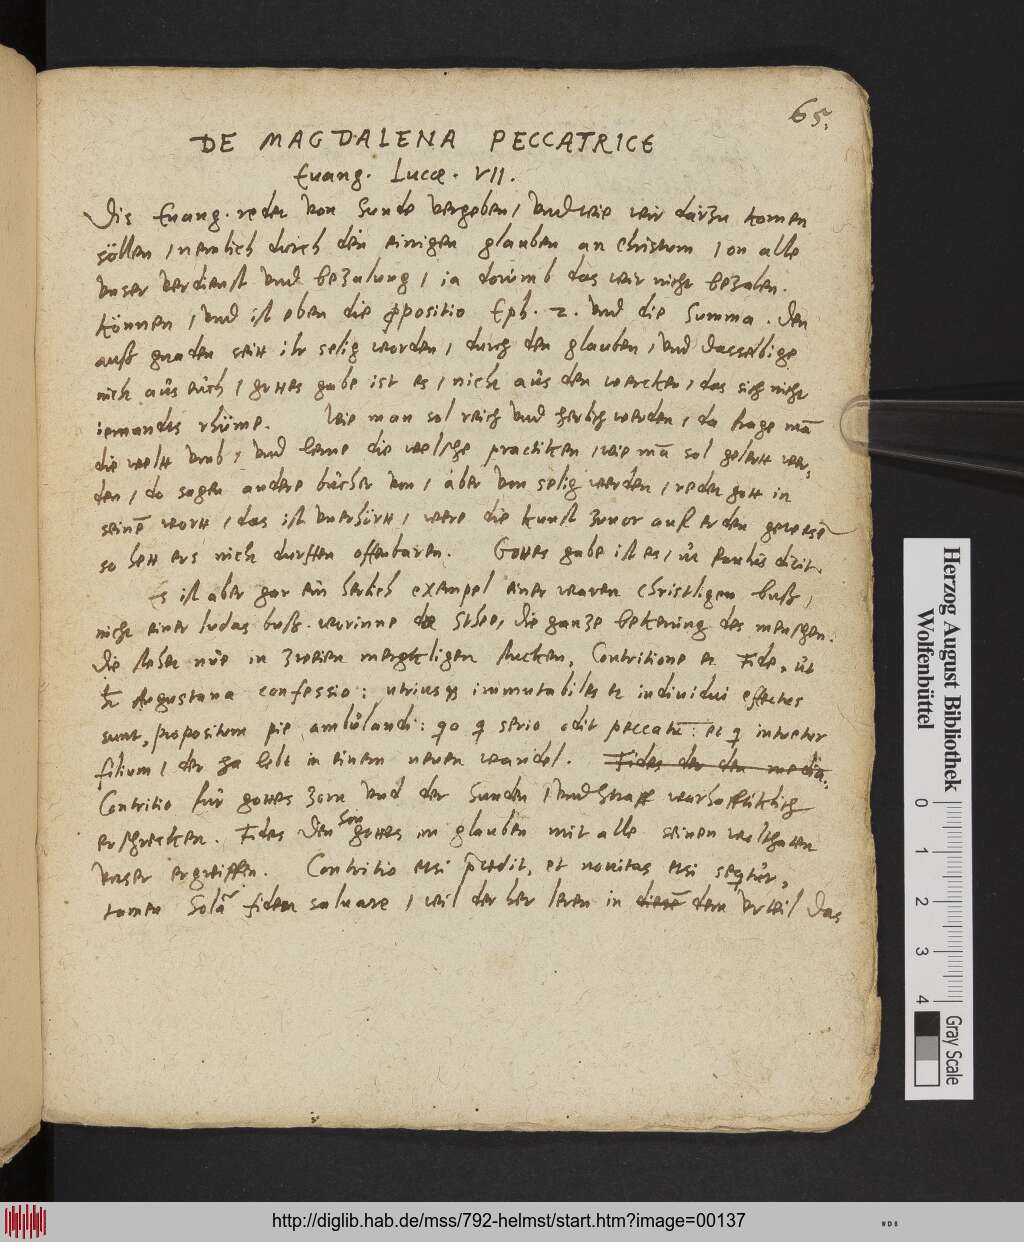 65.
DE MAGDALENA PECCATRICE
Euang. Lucæ. VII.
Dis Euang. redet von Sunde vergeben, vnd wie wir darzu komen
söllen, nemlich durch den einigen glauben an Christum, on alle
vnser verdienst vnd bezalung, ia dorumb das wir nicht bezalen
können, vnd ist eben die ꝓpositio Eph. 2. vnd die Summa. Den
auß gnaden seitt ihr selig worden, durch den glauben, vnd dasselbige
nich aus euch, gottes gabe ist es, nicht aus den wercken, das sich nicht
iemandts rhüme. Wie man sol reich vnd herlich werden, da frage mā
die welt vmb, vnd lerne die welsche practiken, wie mā sol gelertt wer,
den, do sagen andere bücher von, aber von selig werden, redet gott in
seinē wortt, das ist vnerhörtt, were die kunst zuuor auf erden gewesē
so hett ers nich durffen offenbaren. Gottes gabe ist es, ut Paulus dicit.
Es ist aber gar ein herlich exempel einer waren christligen buß,
nicht einer Iudas buß. worinne die ganze bekerung des menschen.
Die stehet nue in zweien stucken, Contritione et Fide, ut
Augustana confessio: immutabiles et indiuidui effectus
sunt, propositum pie ambulandi: serio odit peccatū: et intuetur
filium, der ja lebt in einem neuen wandel. Fides der den media,
Contritio für gottes zorn vnd der Sunden, vnd straff warhafftiklich
erschrecken. Fides Den Son gottes im glauben mit alle seinen wolthaten
vnser ergreiffen. Contritio etsi p̄cedit, et nouitas etsi sequitur,
tamen Solā fidem saluare, weil der her leren in diesē dem vrteil das
Herzog August Bibliothek
Wolfenbüttel
0 1 2 3 4
Gray Scale
http://diglib.hab.de/mss/792-helmst/start.htm?image=00137